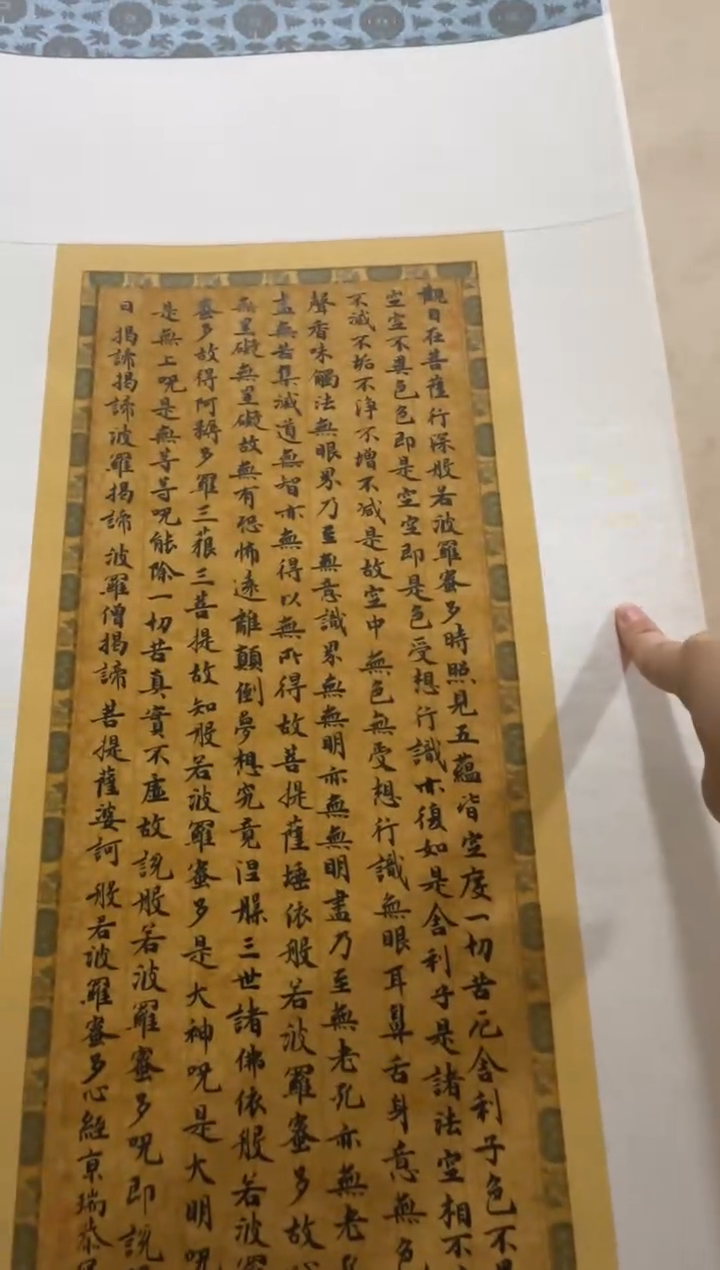 觀自在菩薩行深般若波羅蜜多時照見五蘊皆空度一切苦厄舍利子色不異
空空不異色色即是空空即是色受想行識亦復如是舍利子是諸法空相不
不滅不垢不淨不增不減是故空中無色無受想行識無眼耳鼻舌身意無色
聲香味觸法無眼界乃至無意識界無無明亦無無明盡乃至無老死亦無老
盡無苦集滅道無智亦無得以無所得故菩提薩埵依般若波羅蜜多故心
無罣礙無罣礙故無有恐怖遠離顛倒夢想究竟涅槃三世諸佛依般若波羅
蜜多故得阿耨多羅三藐三菩提故知般若波羅蜜多是大神呪是大明呪
是無上呪是無等等呪能除一切苦真實不虛故說般若波羅蜜多呪即說
曰揭諦揭諦波羅揭諦波羅僧揭諦菩提薩婆訶般若波羅蜜多心經京瑞恭